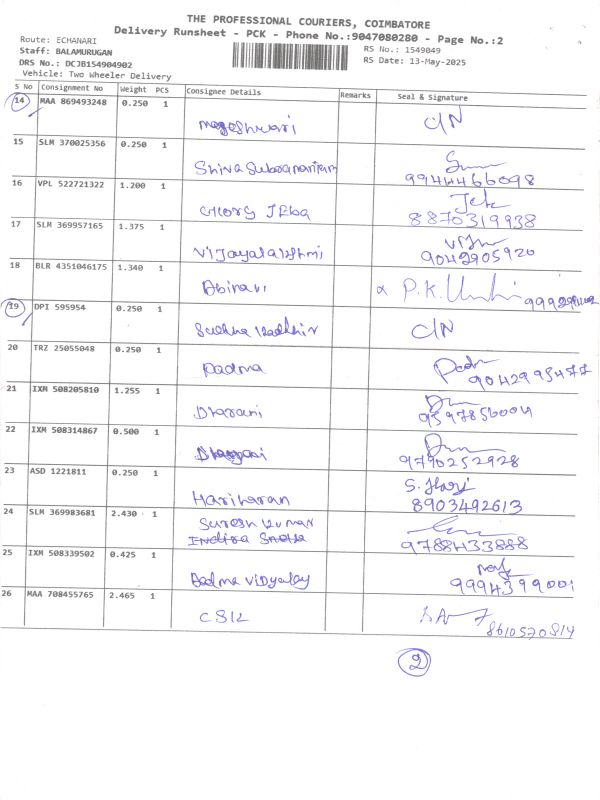 THE PROFESSIONAL COURIERS, COIMBATORE
Delivery Runsheet - PCK - Phone No.:9047080280 - Page No.:2
Route: ECHANARI
RS No.: 1549049
Staff: BALAMURUGAN
RS Date: 13-May-2025
DRS No.: DCJB154904902
Vehicle: Two Wheeler Delivery
S No Consignment No Weight PCS Consignee Details Remarks Seal & Signature
14 MAA 869493248 0.250 1
Mageshwari C/N
15 SLM 370025356 0.250 1
Shiva Subramaniyam 9944466098
16 VPL 522721322 1.200 1
Georg Jeba 8870319938
17 SLM 369957165 1.375 1
Vijayalakshmi 9042905920
18 BLR 4351046175 1.340 1
Abirami P.K.
19 DPI 595954 0.250 1
Sudha C/N
20 TRZ 25055048 0.250 1
Padma 9042995477
21 IXM 508205810 1.255 1
Dharani 9597856004
22 IXM 508314867 0.500 1
9790252928
23 ASD 1221811 0.250 1
Hariharan S. Hari
8903492613
24 SLM 369983681 2.430 1
Suresh Kumar
Indira 9788433888
25 IXM 508339502 0.425 1
Padma Vidyalay 9994399001
26 MAA 708455765 2.465 1
CSK 8610570814
2